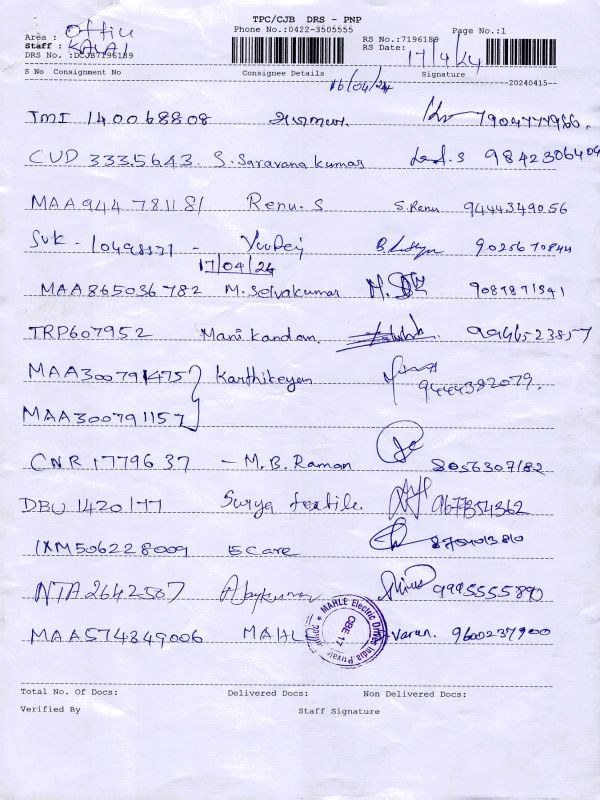 TPC/CJB DRS - PNP
Area : Office
Phone No.:0422-3505555
Page No.:1
Staff : KALAI
RS No.:7196189
DRS No. :DCJB7196189
RS Date: 17/4/24
S No Consignment No Consignee Details Signature
16/04/24
20240415--
IMI 140068808 7904777986
CUD 3335643 S. Saravana kumar 9842306409
MAA944 781181 Renu. S S. Renu 9444349056
SVK - 9025670844
17/04/24
MAA865036782 M. Selvakumar 9087871341
TRP607952 Manikandan.
MAA300791475 Karthikeyan 9444382079.
MAA300791157
CNR 1779637 - M. B. Raman 8056307182
DBU 1420177 Surya textile. 9677354362
IXM506228009 ECare
NTA2642507 Ajaykumar 9995555890
MAA574849006 MAHLE Varun. 9600237900
MAHLE Electric Drives India Private
CBE 17
Total No. Of Docs: Delivered Docs: Non Delivered Docs:
Verified By Staff Signature